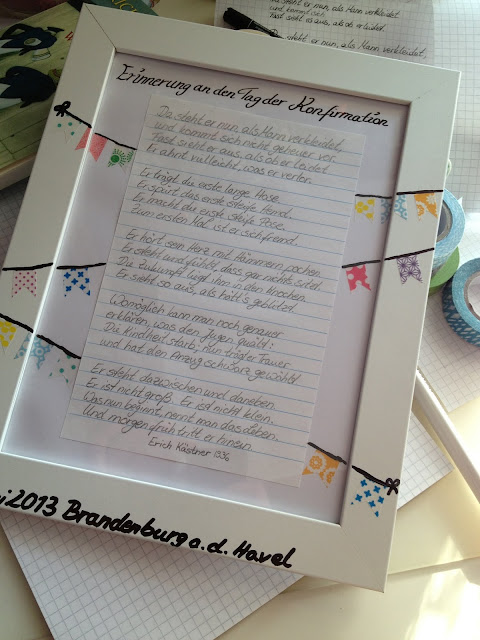 steht er nun, als Mann verkleidet
und kommt sich
Fast sieht es aus, als ob er leidet.
steht er nun, als Mann verkleidet,
Erinnerung an den Tag der Konfirmation
Da steht er nun, als Mann verkleidet,
und kommt sich nicht geheuer vor.
Fast sieht er aus, als ob er leidet.
Er ahnt vielleicht, was er verlor.
Er trägt die erste lange Hose.
Er spürt das erste steife Hemd.
Er macht die erste steife Pose.
Zum ersten Mal ist er sich fremd.
Er hört sein Herz mit Hämmern pochen.
Er steht und fühlt, dass gar nichts sitzt.
Die Zukunft liegt ihm in den Knochen.
Er sieht so aus, als hätt's geblitzt.
Womöglich kann man noch genauer
erklären, was den Jungen quält:
Die Kindheit starb; nun trägt er Trauer
und hat den Anzug schwarz gewählt.
Er steht dazwischen und daneben.
Er ist nicht groß. Er ist nicht klein.
Was nun beginnt, nennt man das Leben.
Und morgen früh tritt er hinein.
Erich Kästner 1936
2013 Brandenburg a.d. Havel